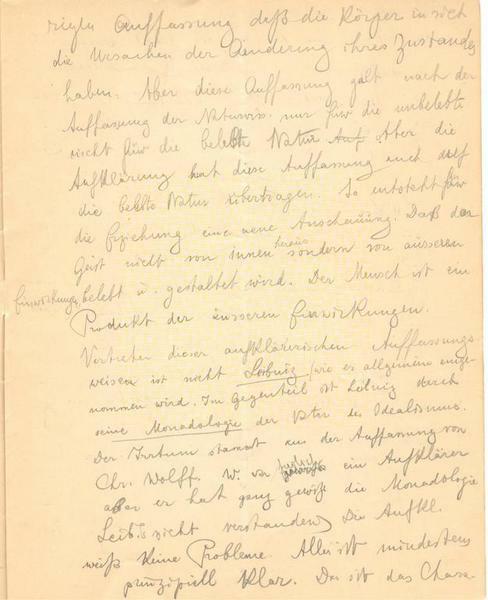 Auffassung daß die Körper in sich
die Ursachen der Änderung ihres Zustandes
haben. Aber diese Auffassung galt nach der
Auffassung der Naturwis. nur für die unbelebte
nicht für die belebte Natur. Aber die
Aufklärung hat diese Auffassung auch auf
die belebte Natur übertragen. So entsteht für
die Erziehung eine neue Anschauung. Daß der
Geist nicht von innen heraus sondern von äusseren
Einwirkungen belebt u. gestaltet wird. Der Mensch ist ein
Produkt der äusseren Einwirkungen.
Vertreter dieser aufklärerischen Auffassungs
weisen ist nicht Leibniz (wie es allgemein ange
nommen wird. Im Gegenteil ist Leibniz durch
seine Monadologie der Vter des Idealismus.
Der Irrtum stammt aus der Auffassung von
Chr. Wolff. W. war ein Aufklärer
aber er hat ganz gewiß die Monadologie
Leib's nicht verstanden) Die Aufkl.
weiß keine Probleme. Alles ist mindestens
prinzipiell klar. Das ist das Chara-